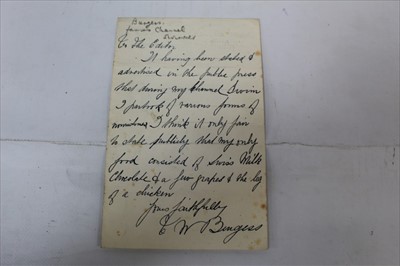 Burgess.
famous Channel
To the Editor
It having been stated &
advertised in the public press
that during my Channel Swim
I partook of various forms of
nourishment I think it only fair
to state publicly that my only
food consisted of Swiss Milk
Chocolate & a few grapes & the leg
of a chicken
Yours faithfully
T W Burgess